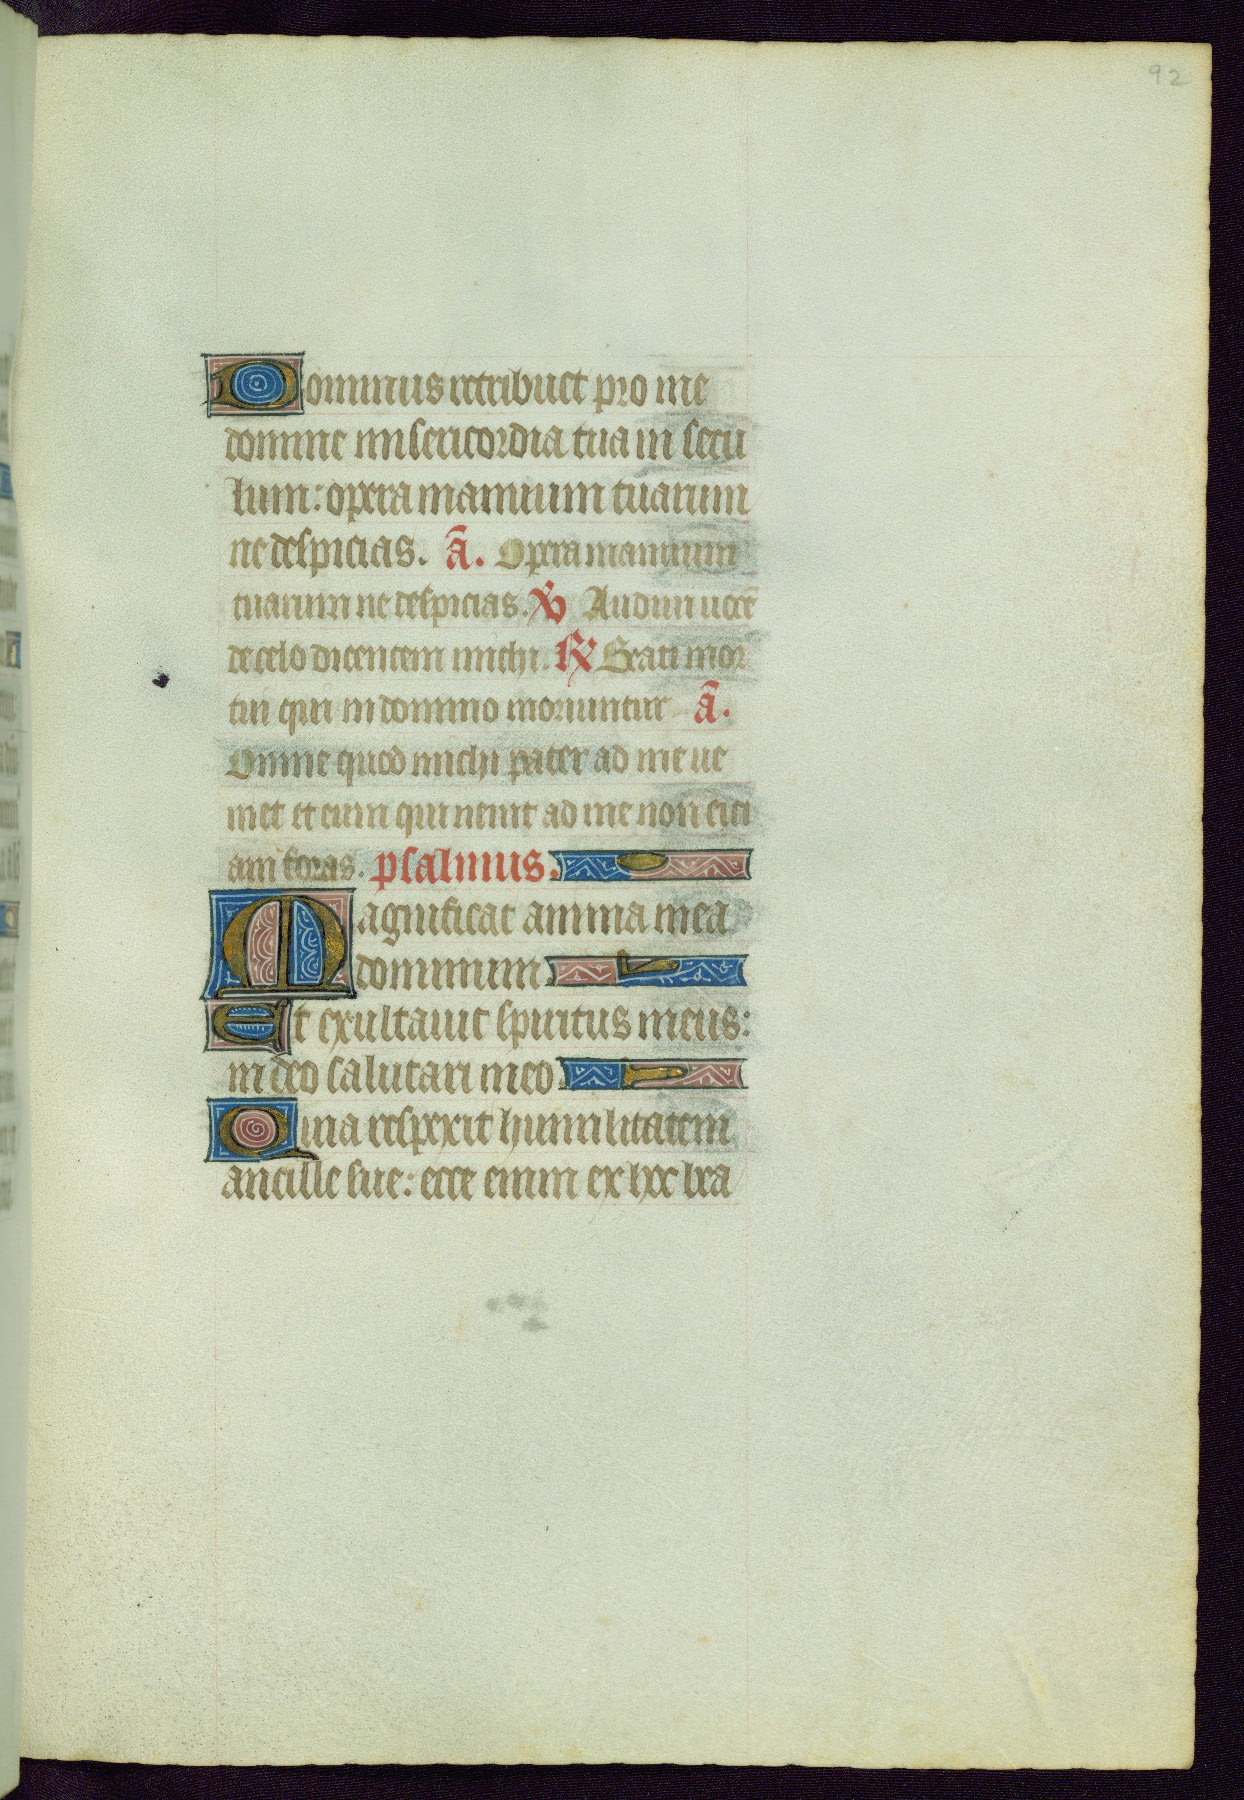 92
Dominus retribuet pro me
domine misericordia tua in secu
lum: opera manuum tuarum
ne despicias. ā. Opera manuum
tuarum ne despicias. ℣ Audiui uocē
de celo dicentem michi. ℟ Beati mor
tui qui in domino moriuntur ā.
Omne quod michi pater ad me ue
niet et eum qui uenit ad me non eici
am foras. psalmus.
Magnificat anima mea
dominum.
Et exultauit spiritus meus:
in deo salutari meo
Quia respexit humilitatem
ancille sue: ecce enim ex hoc bea